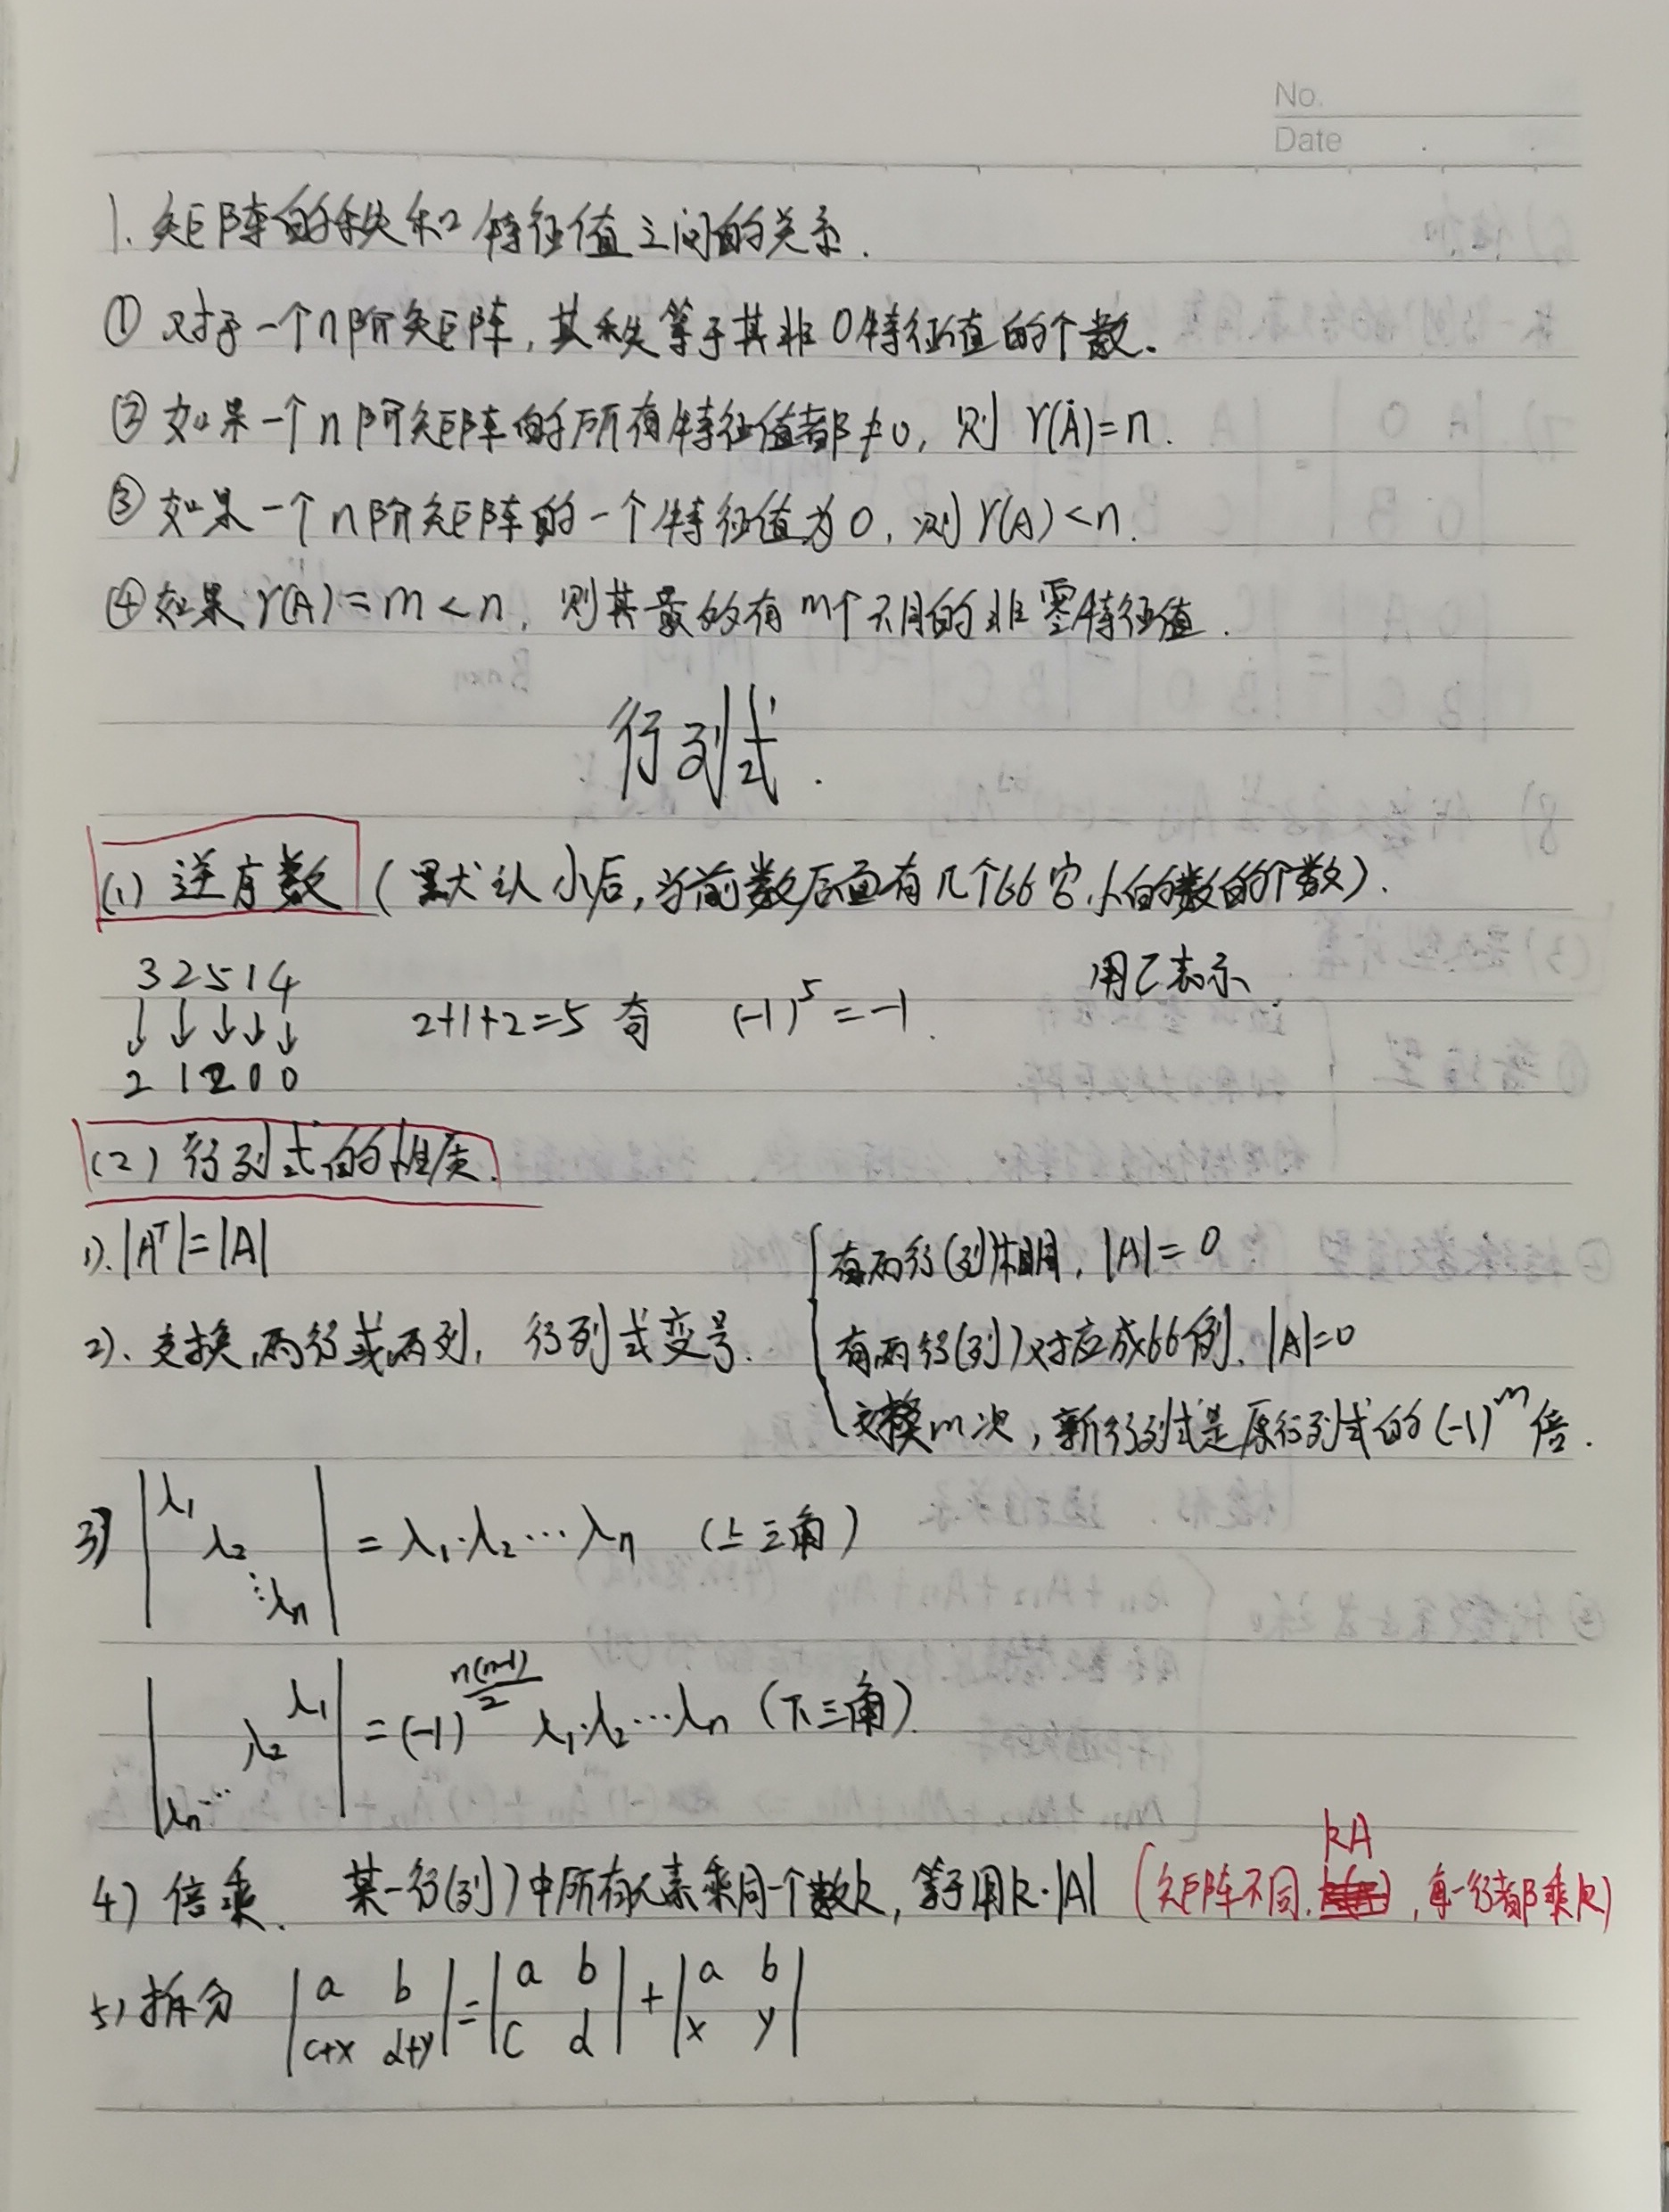 No.
Date
1. 矩阵的秩和特征值之间的关系.
① 对于一个n阶矩阵,其秩等于其非0特征值的个数。
② 如果一个n阶矩阵的所有特征值都≠0, 则 r(A)=n.
③ 如果一个n阶矩阵的一个特征值为0, 则 r(A)<n.
④ 如果 r(A)=m<n, 则其最多有m个不同的非零特征值.
行列式.
(1) 逆序数 (默认小后,当前数后面有几个比它小的数的个数).
3 2 5 1 4
用τ表示
↓ ↓ ↓ ↓ ↓ 2+1+2=5 奇 (-1)^5=-1.
2 1 2 0 0
(2) 行列式的性质.
1). |A^T|=|A|
有两行(列)相同, |A|=0
2). 交换两行或两列, 行列式变号.
有两行(列)对应成比例. |A|=0
交换m次, 新行列式是原行列式的(-1)^m倍.
3) |λ1 λ2 ⋱ λn| = λ1·λ2⋯λn (上三角)
|λ1 λ2 ⋯ λn| = (-1)^{n(n-1)/2} λ1·λ2⋯λn (下三角).
kA
4) 倍乘. 某一行(列)中所有元素乘同一个数k, 等于用k·|A| (矩阵不同. , 每一行都乘k)
5) 拆分 |a b| = |a b| + |a b|
|c+x d+y| |c d| |x y|